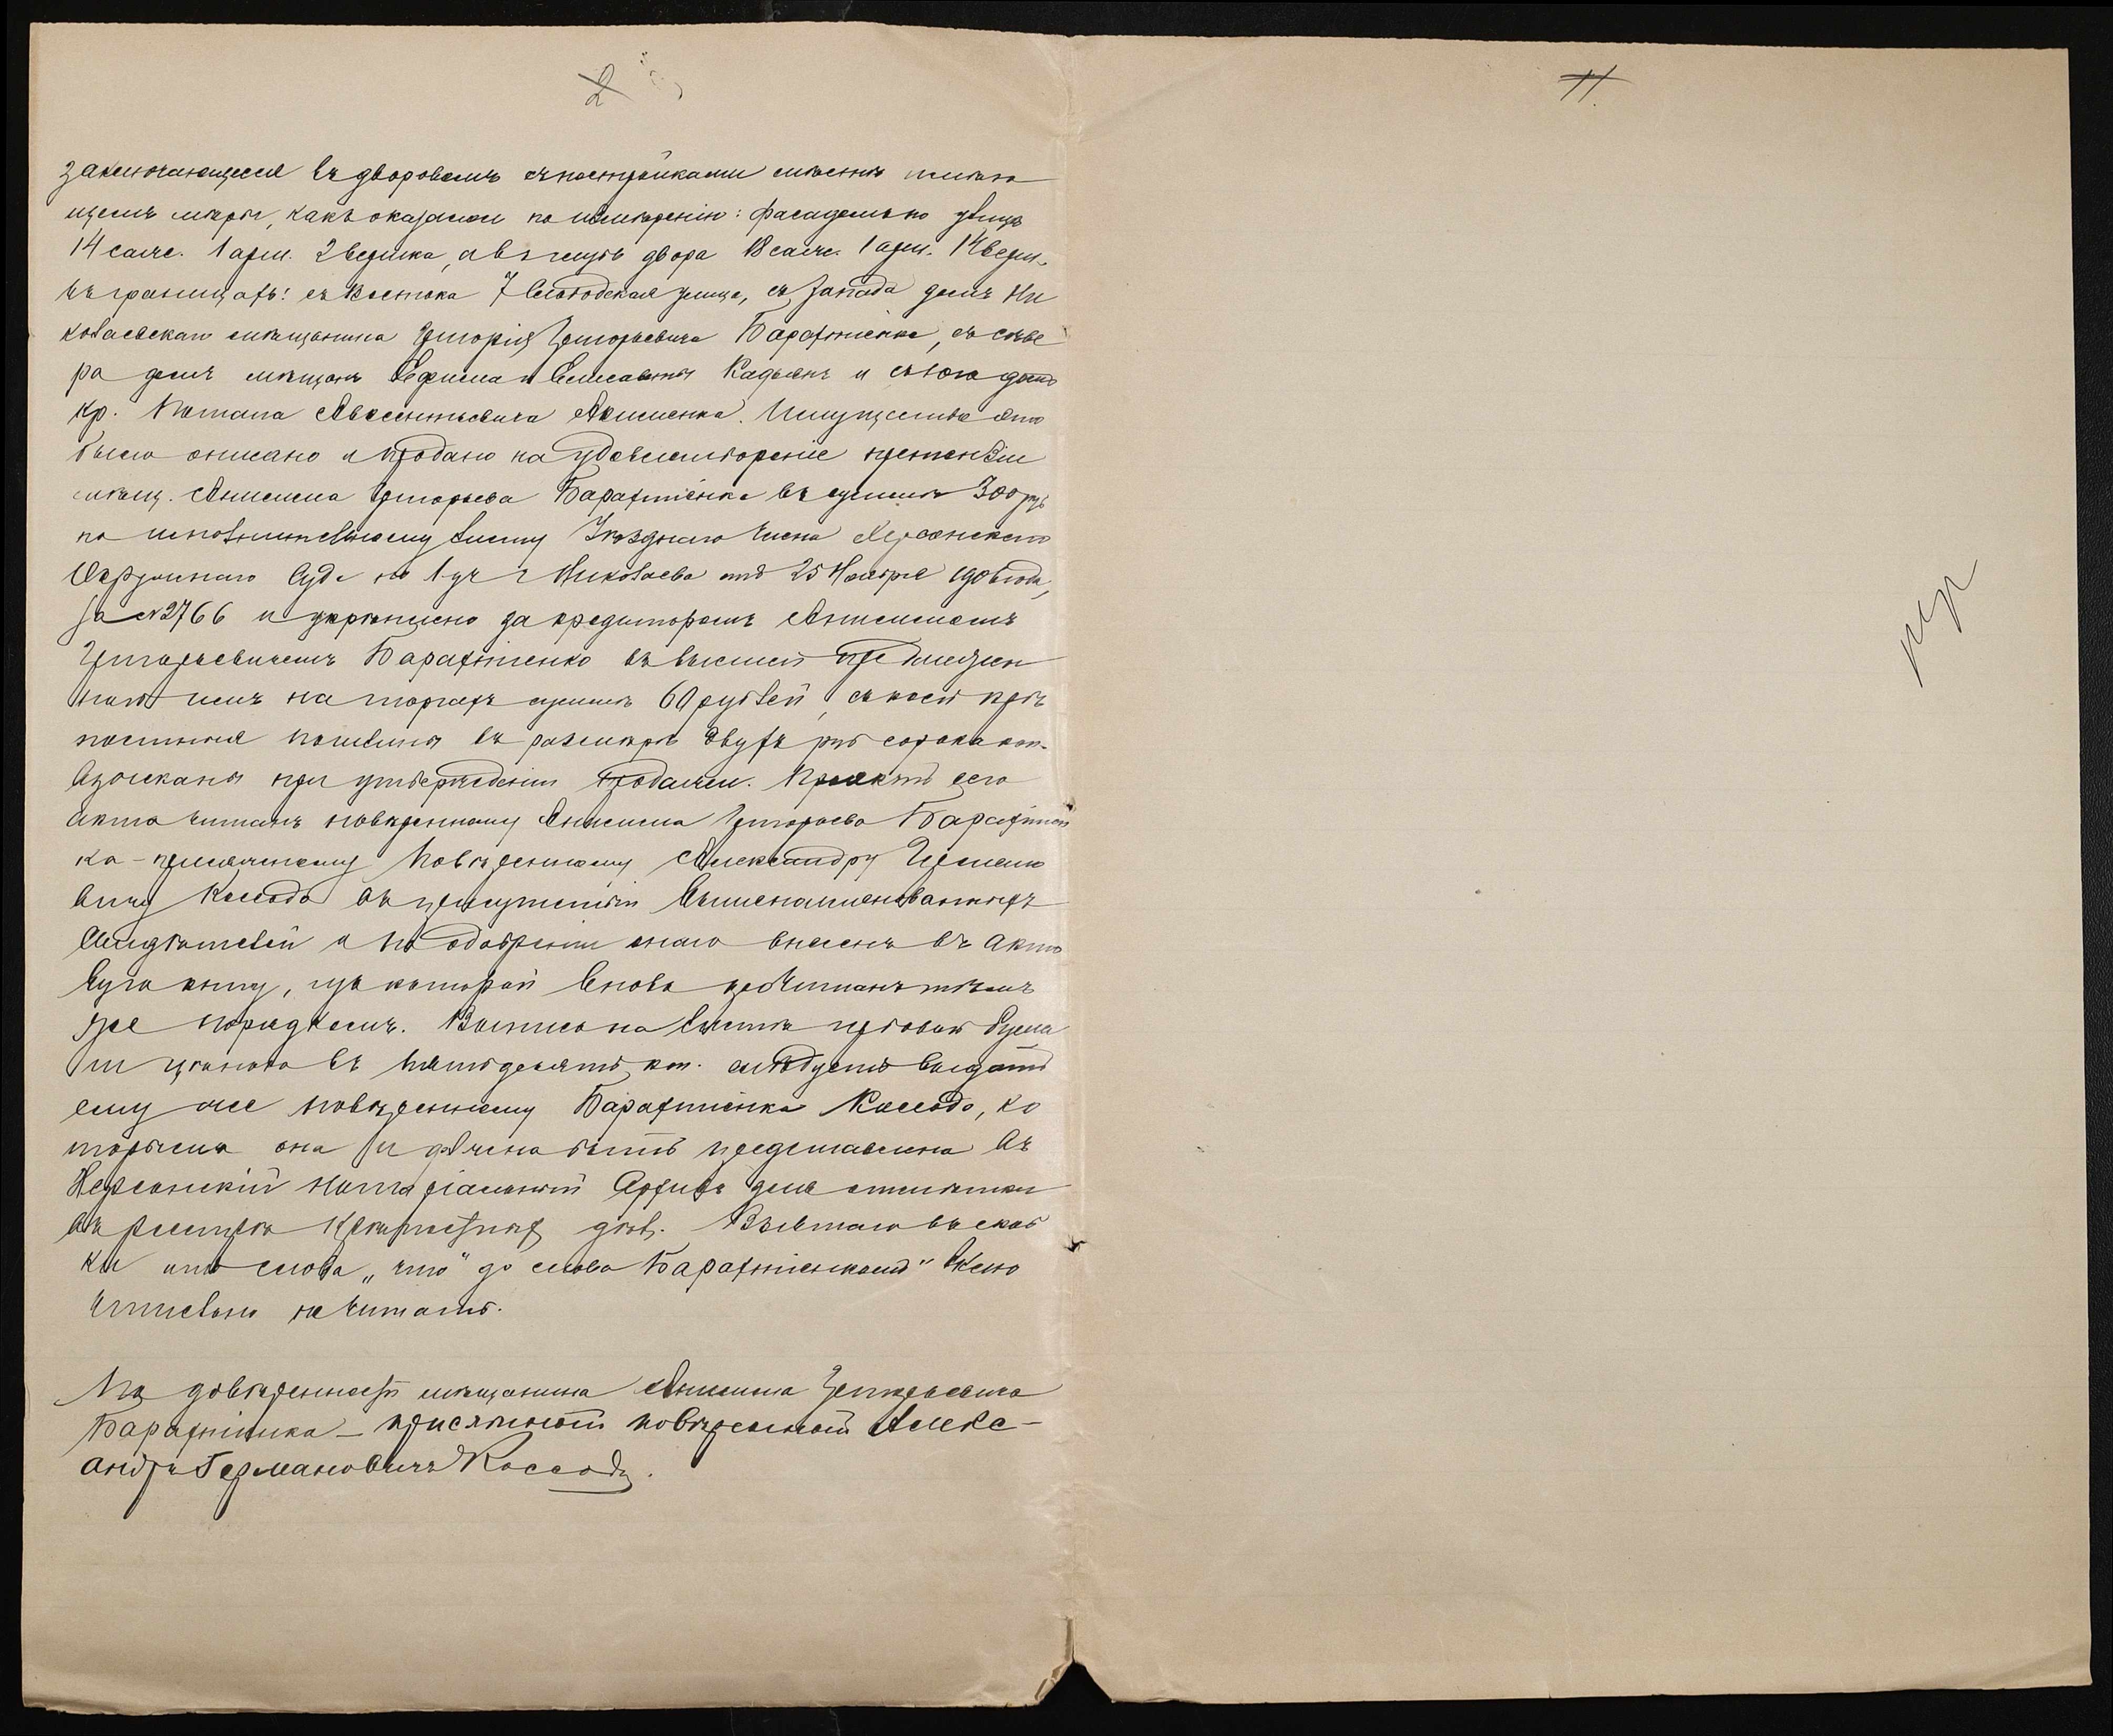 2
11.
заключающееся въ дворовомъ съ постройками мѣстѣ имѣю
щемъ мѣры, какъ оказалось по измѣренію: фасадомъ по улицѣ
14 саж. 1 арш. 2 вершка, а въ глубь двора 18 саж. 1 арш. 14 верш.
въ границахъ: съ Востока 7 Слободская улица, съ Запада домъ Ни
колаевскаго мѣщанина Григорія Григорьевича Барахтіенка, съ сѣве
ра домъ мѣщанъ Ефима и Елисаветы Кадьянъ и съ юга домъ
кр. Потапа Авксентьевича Акименка. Имущество это
было описано и продано на удовлетвореніе претензіи
мѣщ. Анисима Григорьева Барахтіенка въ суммѣ 300 руб
по исполнительному листу Уѣзднаго Члена Херсонскаго
Окружнаго Суда по 1 уч г Николаева отъ 25 Ноября года,
за №2766 и укрѣплено за кредиторомъ Анисимомъ
Григорьевичемъ Барахтіенко въ высшей предложен
ной имъ на торгахъ суммѣ 60 рублей, съ коей крѣ
постныя пошлины въ размѣрѣ двухъ руб сорока коп.
взысканы при утвержденіи продажи. Проектъ сего
акта читанъ повѣренному Анисима Григорьева Барахтіен
ка - присяжному повѣренному Александру Германо
вичу Коссодо въ присутствіи вышепоименованныхъ
свидѣтелей и по одобреніи онаго внесенъ въ акто
вую книгу, изъ которой вновь прочитанъ тѣмъ
же порядкомъ. Выпись на листѣ гербовой бума
ги цѣною въ пятьдесятъ коп. слѣдуетъ выдать
ему же повѣренному Барахтіенка Коссодо, ко
торымъ она и должна быть представлена въ
Херсонскій Нотаріальный Архивъ для отмѣтки
въ реестрѣ крѣпостныхъ дѣлъ. Взятаго въ скоб
ки отъ слова „что" до слова Барахтіенкомъ" включ
ительно не читать.
По довѣренности мѣщанина Анисима Григорьевича
Барахтіенка - присяжный повѣренный Алекс-
андръ Германовичъ Коссодо.